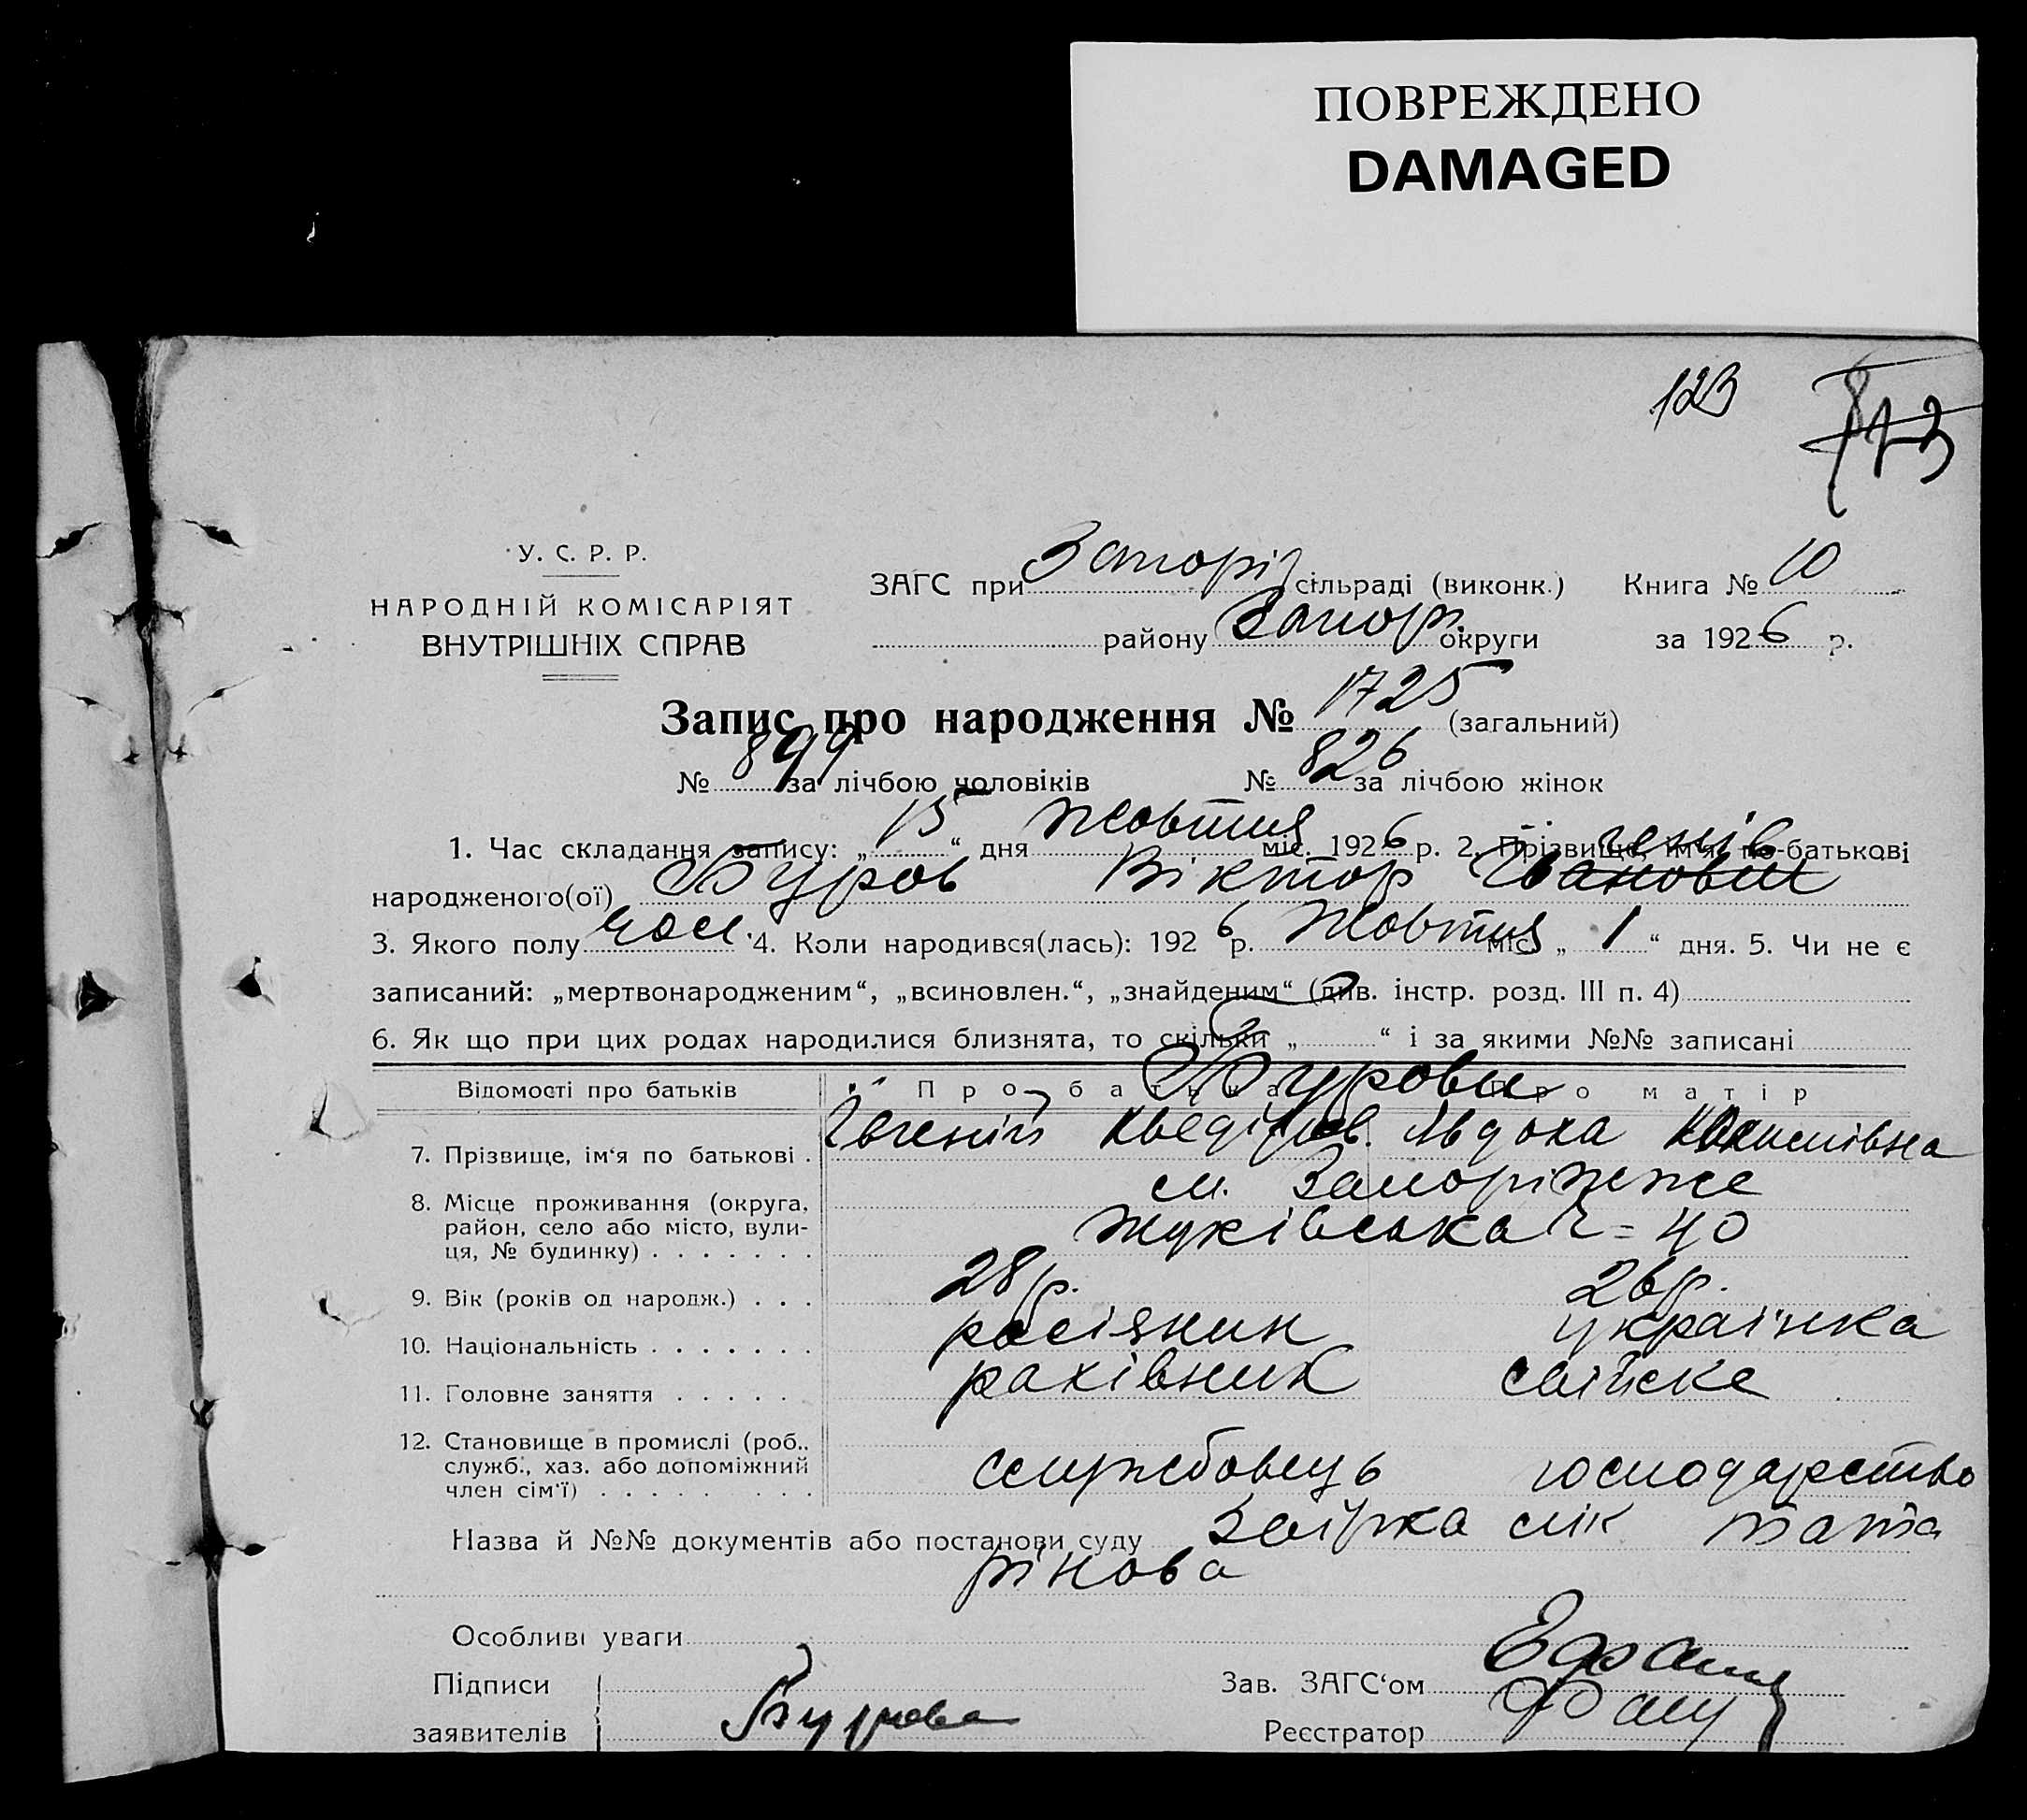 ПОВРЕЖДЕНО
DAMAGED
123
У. С. Р. Р.
НАРОДНІЙ КОМІСАРІЯТ
ВНУТРІШНІХ СПРАВ
ЗАГС при Запоріз сільраді (виконк.) Книга № 10
району Запор. округи за 1926 р.
Запис про народження № 1725 (загальний)
№ 899 за лічбою чоловіків № 826 за лічбою жінок
1. Час складання запису: „15“ дня Жовтня міс. 1926 р. 2. Прізвище, ім'я, по-батькові
народженого(ої) Буров Віктор Іванович
3. Якого полу чол. 4. Коли народився(лась): 1926 р. Жовтня міс. „1“ дня. 5. Чи не є
записаний: „мертвонародженим“, „всиновлен.“, „знайденим“ (див. інстр. розд. III п. 4)
6. Як що при цих родах народилися близнята, то скільки „ “ і за якими №№ записані
Відомості про батьків Про батька Про матір
Бурови
7. Прізвище, ім'я по батькові . Євгеній Авдоха
8. Місце проживання (округа, район, село або місто, вулиця, № будинку) . . . . . . . м. Запоріжже
Жуківська 40
9. Вік (років од народж.) . . . 28 р. 26 р.
10. Національність . . . . . . . росіянин українка
11. Головне заняття . . . . . рахівник
12. Становище в промислі (роб., служб., хаз. або допоміжний член сім'ї) . . . . . . . . службовець господарство
Назва й №№ документів або постанови суду
Особливі уваги
Підписи
заявителів Бурова
Зав. ЗАГС'ом
Реєстратор